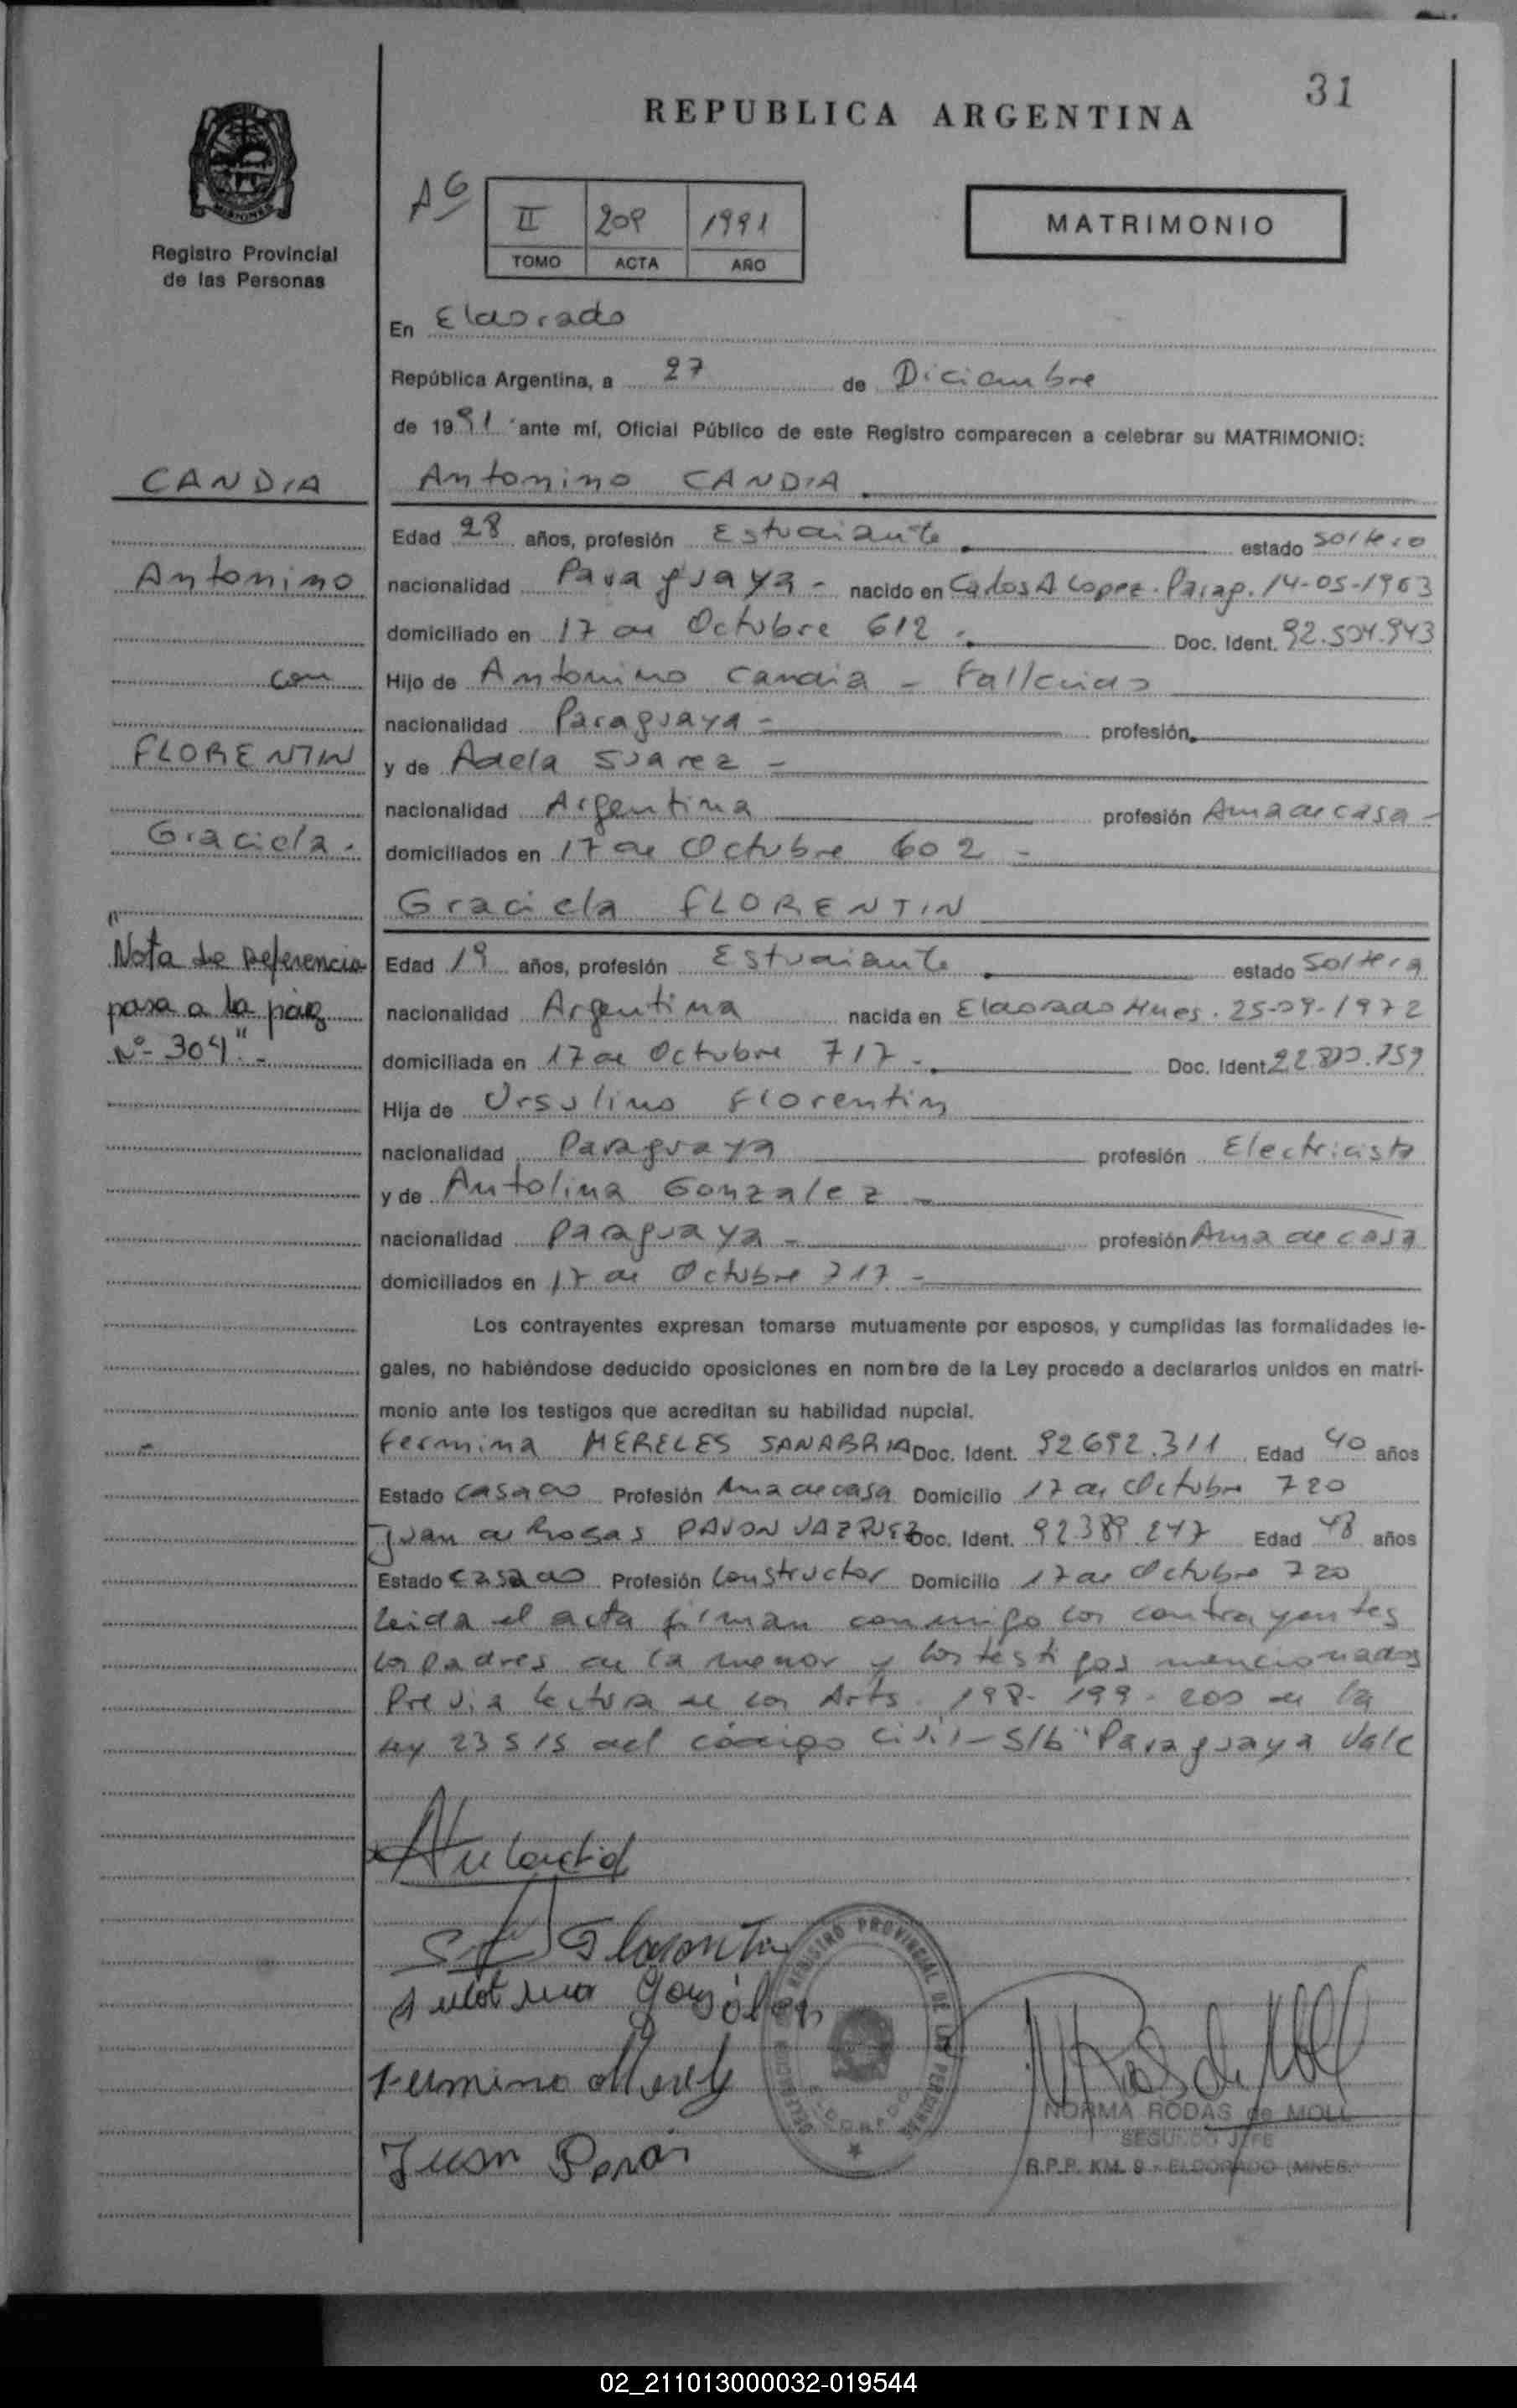 31
REPUBLICA ARGENTINA
MISIONES
Registro Provincial
de las Personas
AG
II 209 1991
TOMO ACTA AÑO
MATRIMONIO
En Eldorado
República Argentina, a 27 de Diciembre
de 1991 ante mí, Oficial Público de este Registro comparecen a celebrar su MATRIMONIO:
CANDIA
Antonino
con
FLORENTIN
Graciela.-
"Nota de Referencia
pasa a la pág
Nº 304".-
Antonino CANDIA
Edad 28 años, profesión Estudiante estado soltero
nacionalidad Paraguaya - nacido en Carlos A Lopez. Parag. 14-05-1963
domiciliado en 17 de Octubre 612.- Doc. Ident. 92.504.943
Hijo de Antonino Candia - Fallecido
nacionalidad Paraguaya - profesión
y de Adela Suarez -
nacionalidad Argentina profesión Ama de casa -
domiciliados en 17 de Octubre 602 -
Graciela FLORENTIN
Edad 19 años, profesión Estudiante estado Soltera
nacionalidad Argentina nacida en Eldorado Mnes. 25-09-1972
domiciliada en 17 de Octubre 717 -. Doc. Ident. 759
Hija de Ursulino Florentin
nacionalidad Paraguaya profesión Electricista
y de Antolina Gonzalez -
nacionalidad Paraguaya - profesión Ama de casa
domiciliados en 17 de Octubre 717 -
Los contrayentes expresan tomarse mutuamente por esposos, y cumplidas las formalidades le-
gales, no habiéndose deducido oposiciones en nombre de la Ley procedo a declararlos unidos en matri-
monio ante los testigos que acreditan su habilidad nupcial.
Fermina MERELES SANABRIA Doc. Ident. 92.692.311 Edad 40 años
Estado casado Profesión Ama de casa Domicilio 17 de Octubre 720
Juan de Rosas PAVON VAZQUEZ Doc. Ident. 92.389.247 Edad 48 años
Estado casado Profesión Constructor Domicilio 17 de Octubre 720
Leida el acta firman conmigo los contrayentes
los padres de la menor y los testigos mencionados
Previa lectura de los Arts. 198- 199- 200 de la
ley 23515 del código civil - S/b "Paraguaya Vale
Antolina González
Fermina Mereles
REGISTRO PROVINCIAL DE LAS PERSONAS
ELDORADO
NORMA RODAS de MOLL
SEGUNDO JEFE
R.P.P. KM. 9 - ELDORADO (MNES.
02_211013000032-019544